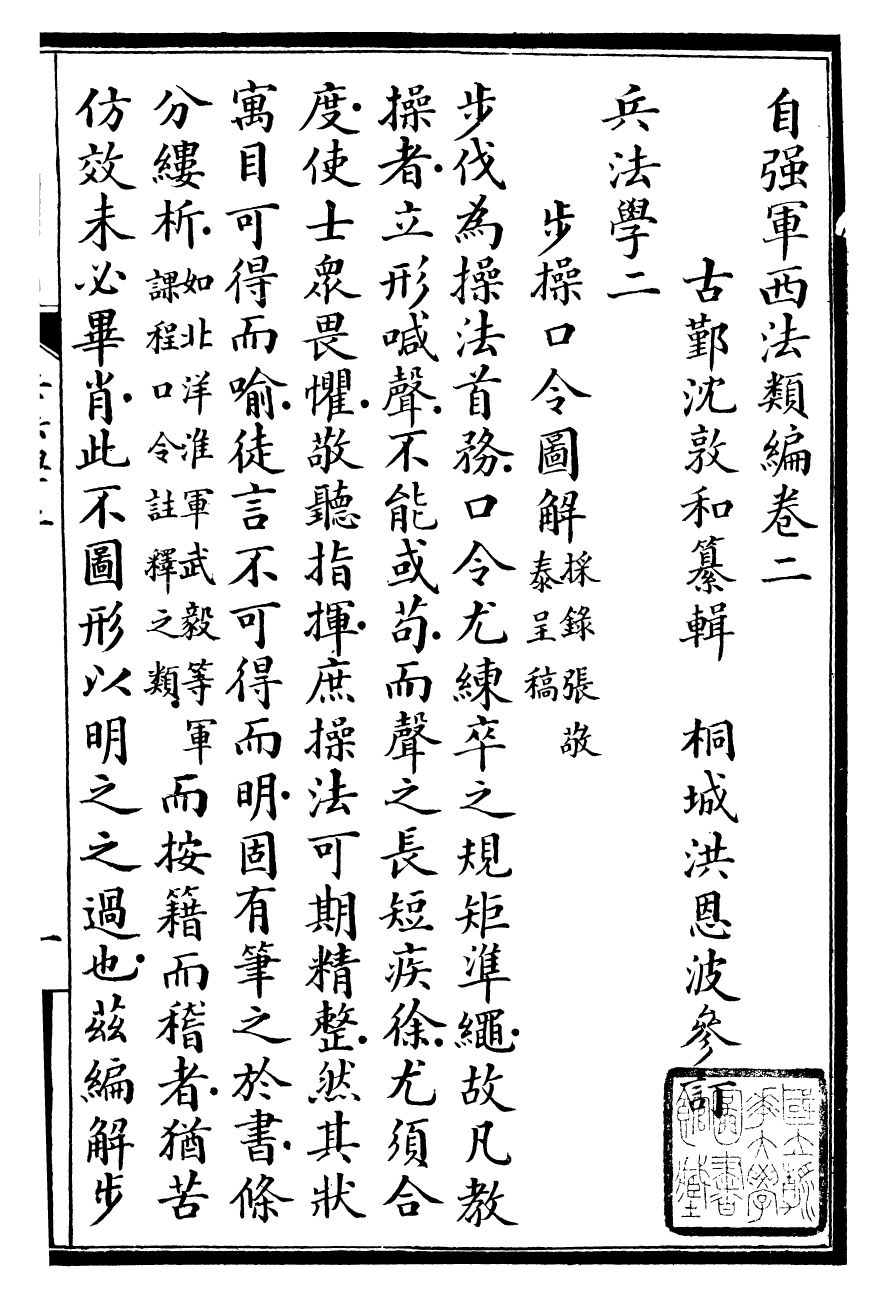 自强軍西法類編卷二
古鄞沈敦和纂輯　桐城洪恩波參訂
兵法學二
步操口令圖解採錄張敬泰呈稿
步伐為操法首務．口令尤練卒之規矩準繩．故凡教
操者．立形喊聲．不能或茍．而聲之長短疾徐．尤須合
度．使士眾畏懼．敬聽指揮．庶操法可期精整．然其狀
寓目可得而喻．徒言不可得而明．固有筆之於書．條
分縷析．如北洋淮軍武毅等軍課程口令註釋之類．而按籍而稽者．猶苦
仿效未必畢肖．此不圖形以明之之過也．茲編解步
一